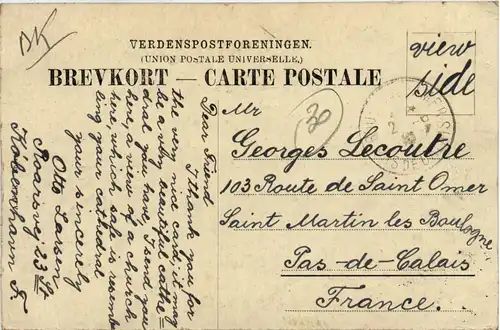 DK
VERDENSPOSTFORENINGEN.
(UNION POSTALE UNIVERSELLE.)
BREVKORT — CARTE POSTALE
view
side
30
Dear Friend
I thank you for
the very nice card, it may
be a very beautiful cathe=
dral you have, I send you
here a view of a church
here, which also is resemb
ling your cathedral
yours sincerely
Otto Larsen
Roarsvej 23 St
Kobenhavn F.
Mr
Georges Lecoutre
103 Route de Saint Omer
Saint Martin les Boulogne
Pas-de-Calais
France.